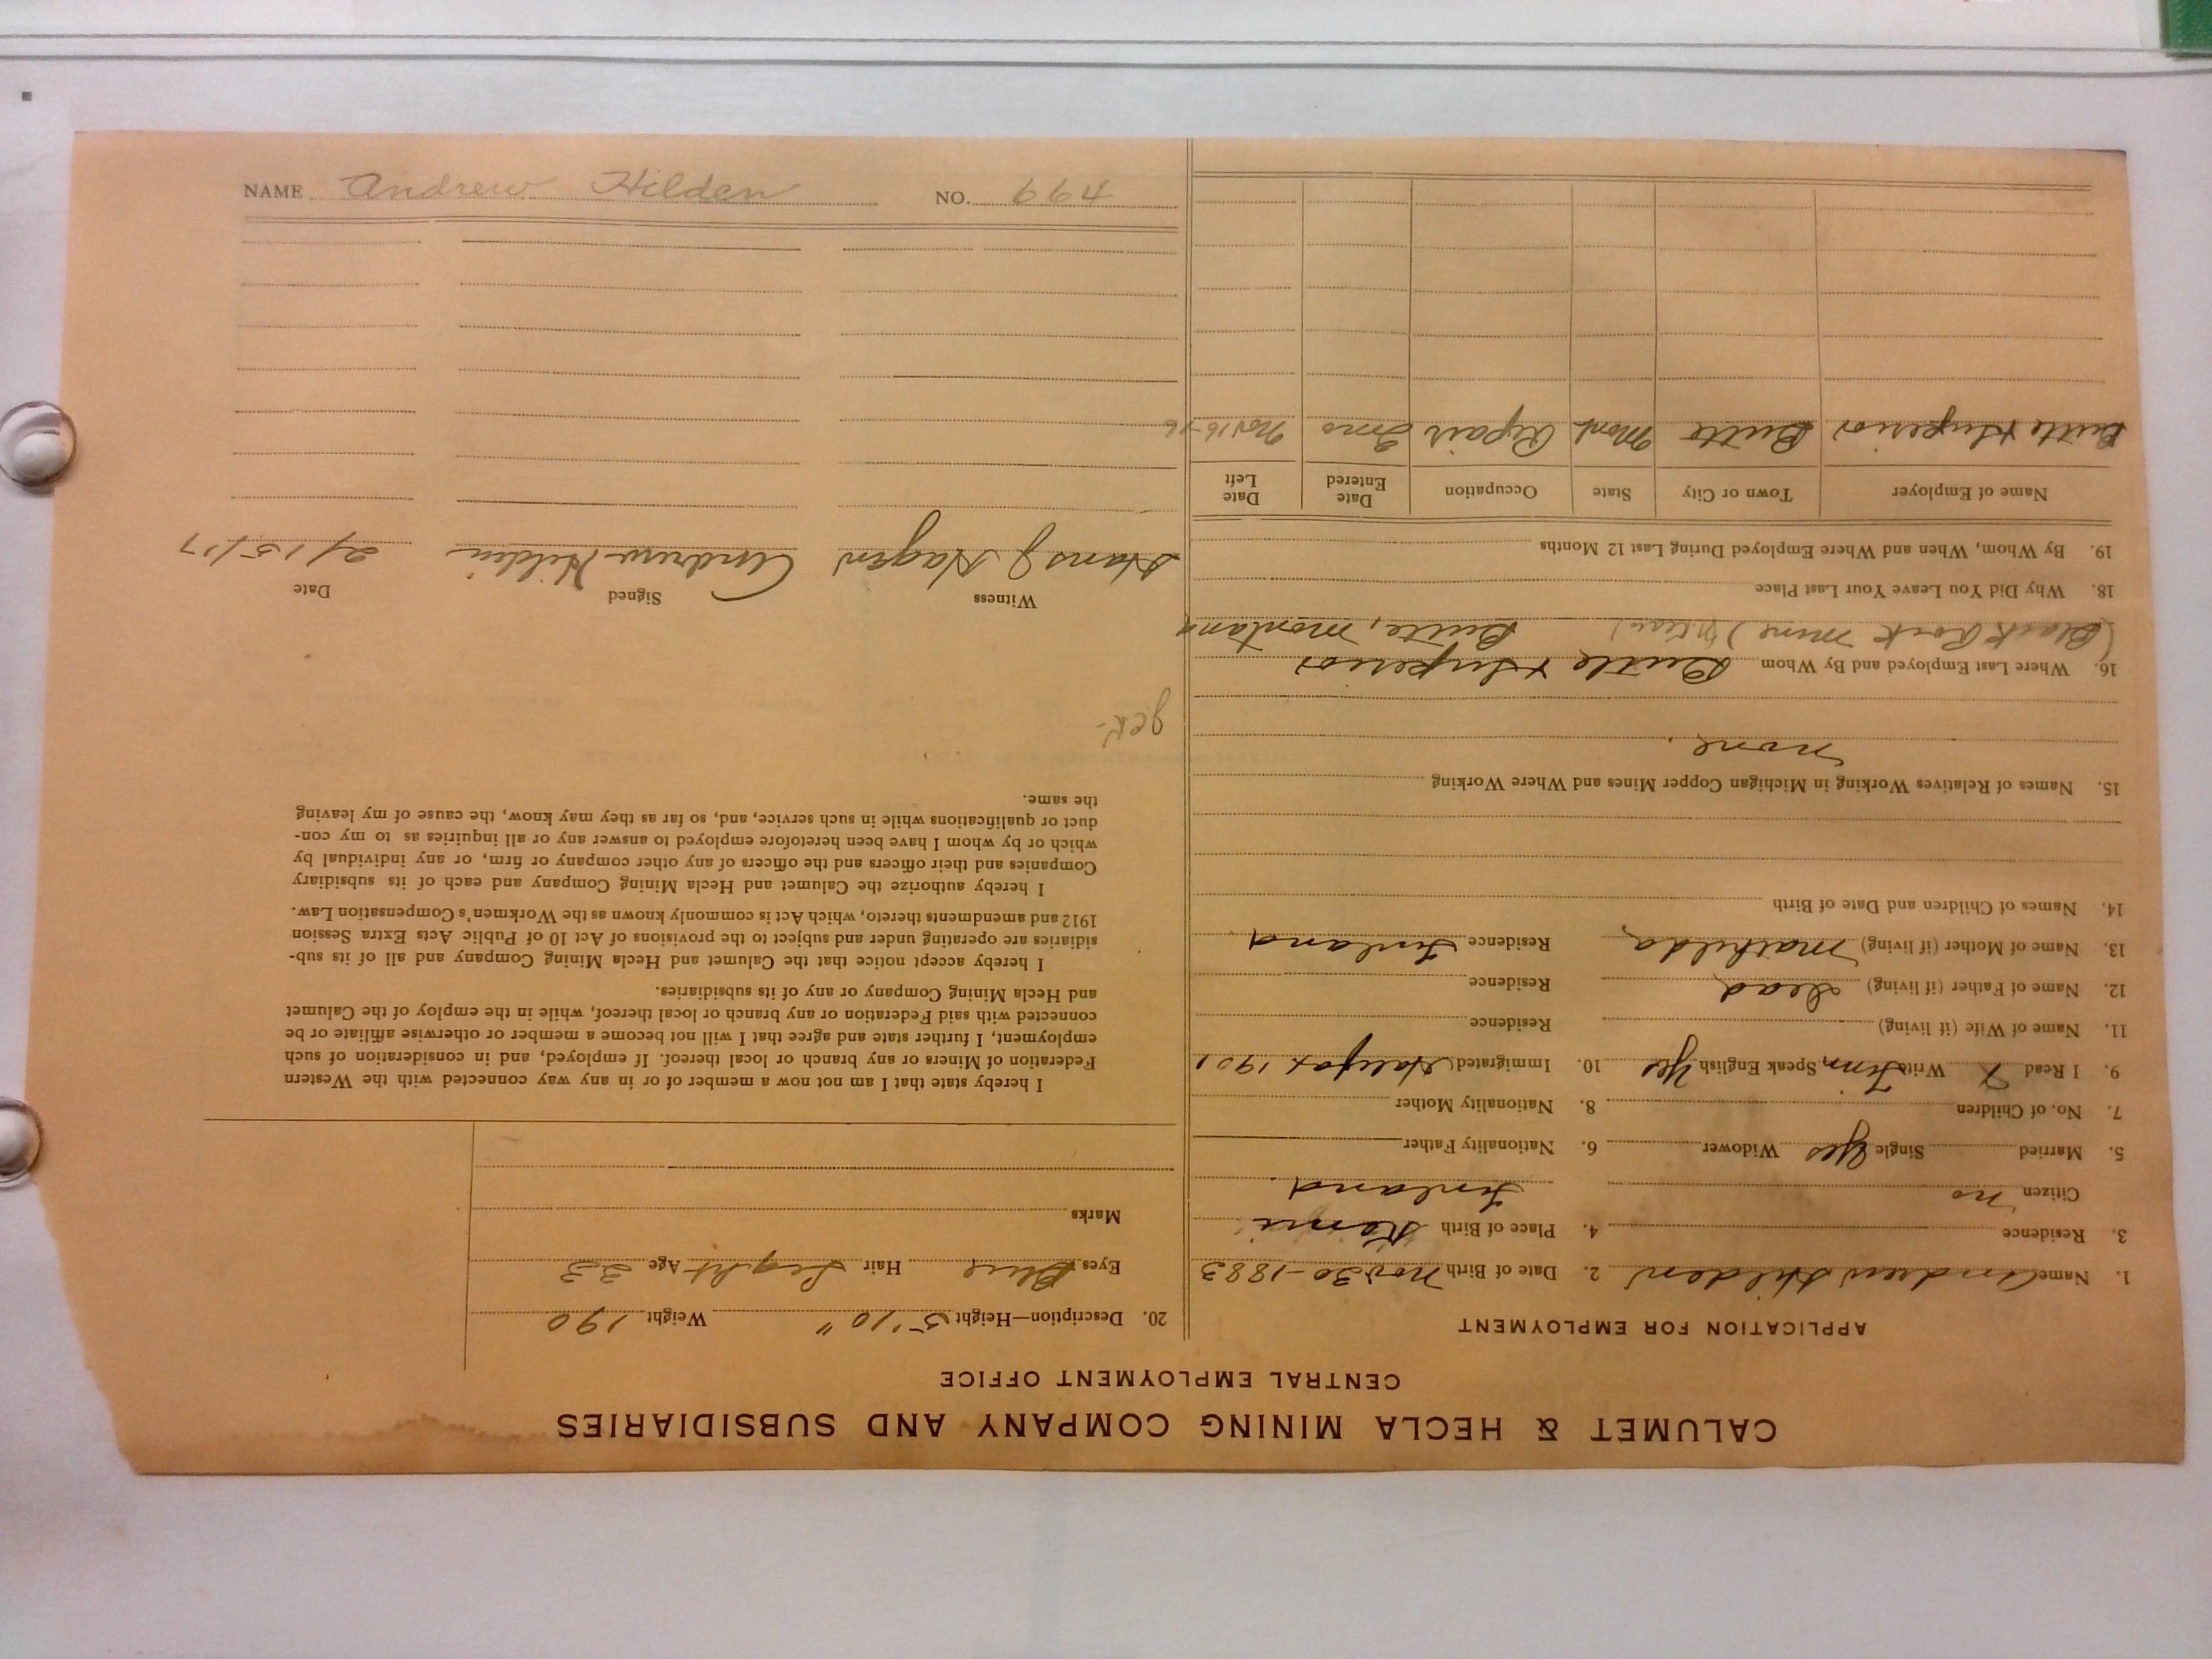 CALUMET & HECLA MINING COMPANY AND SUBSIDIARIES
CENTRAL EMPLOYMENT OFFICE
APPLICATION FOR EMPLOYMENT
1. Name Andrew Hilden 2. Date of Birth Nov 30-1883
3. Residence 4. Place of Birth
Citizen no Finland.
5. Married Single Yes Widower 6. Nationality Father
7. No. of Children 8. Nationality Mother
9. I Read X Write Finn, Speak English Yes 10. Immigrated Halifax 1901
11. Name of Wife (if living) Residence
12. Name of Father (if living) Dead Residence
13. Name of Mother (if living) Mathilda Residence Finland
14. Names of Children and Date of Birth
15. Names of Relatives Working in Michigan Copper Mines and Where Working
None.
16. Where Last Employed and By Whom Butte & Superior
(Black Rock Mine) Butte, Montana
18. Why Did You Leave Your Last Place
19. By Whom, When and Where Employed During Last 12 Months
Name of Employer Town or City State Occupation Date Entered Date Left
Butte & Superior Butte Mont Repair 3 mo Nov 16-16
20. Description—Height 5' 10" Weight 190
Eyes Blue Hair Light Age 33
Marks
I hereby state that I am not now a member of or in any way connected with the Western
Federation of Miners or any branch or local thereof. If employed, and in consideration of such
employment, I further state and agree that I will not become a member or otherwise affiliate or be
connected with said Federation or any branch or local thereof, while in the employ of the Calumet
and Hecla Mining Company or any of its subsidiaries.
I hereby accept notice that the Calumet and Hecla Mining Company and all of its sub-
sidiaries are operating under and subject to the provisions of Act 10 of Public Acts Extra Session
1912 and amendments thereto, which Act is commonly known as the Workmen's Compensation Law.
I hereby authorize the Calumet and Hecla Mining Company and each of its subsidiary
Companies and their officers and the officers of any other company or firm, or any individual by
which or by whom I have been heretofore employed to answer any or all inquiries as to my con-
duct or qualifications while in such service, and, so far as they may know, the cause of my leaving
the same.
Witness Signed Date
Hans J Hagen Andrew Hilden 2/15/17
NAME Andrew Hilden NO. 664